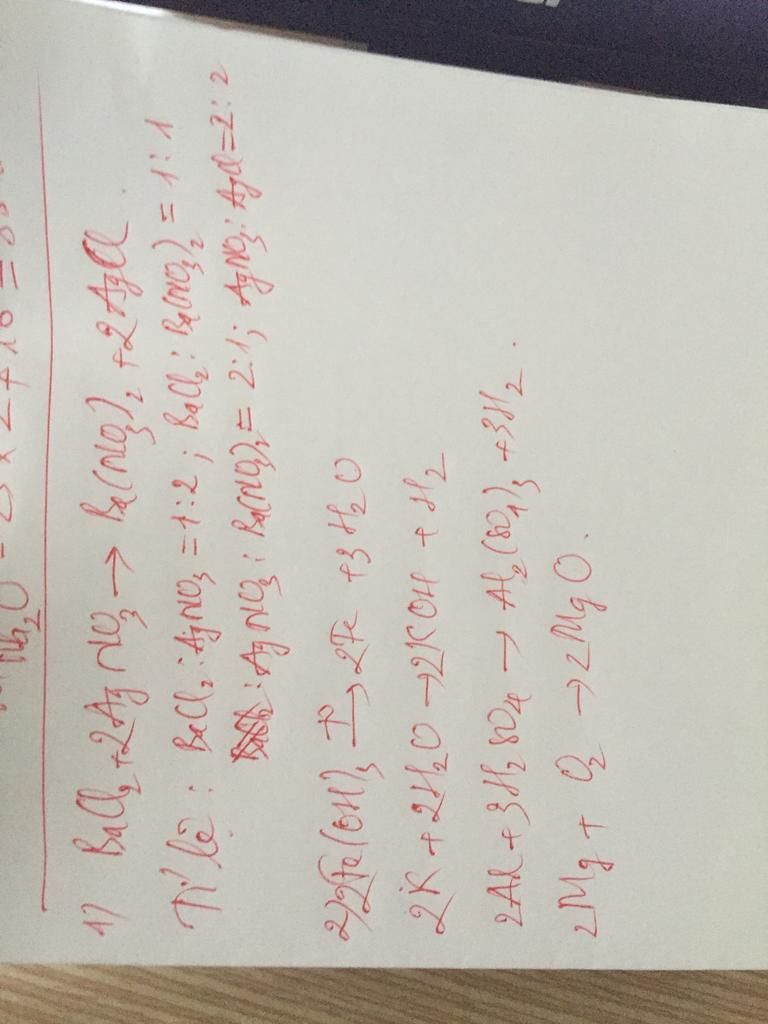 Na₂O = 23 x 2 + 16 =
1) BaCl₂ + 2AgNO₃ → Ba(NO₃)₂ + 2AgCl
Tỉ lệ : BaCl₂ : AgNO₃ = 1:2 ; BaCl₂ : Ba(NO₃)₂ = 1:1
: AgNO₃ : Ba(NO₃)₂ = 2:1 ; AgNO₃ : AgCl = 2:2
2) 2Fe(OH)₃ → 2Fe + 3H₂O
2K + 2H₂O → 2KOH + H₂
2Al + 3H₂SO₄ → Al₂(SO₄)₃ + 3H₂.
2Mg + O₂ → 2MgO.